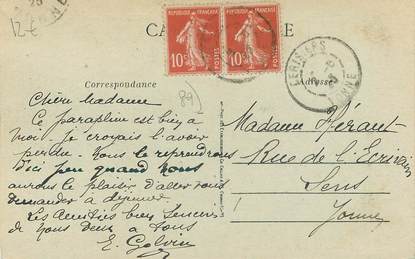 12 €
CA
E
REPUBLIQUE FRANÇAISE
REPUBLIQUE FRANÇAISE
10c
POSTES
10c
POSTES
CERISIERS
YONNE
Correspondance
Adresse
89
Chère Madame
Ce parapluie est bien à
moi je croyais l'avoir
perdu. Nous le reprendrons
d'ici peu quand nous
aurons le plaisir d'aller vous
demander à déjeuner
Les Amitiés bien sincères
de nous deux a tous
E. Golvin
Madame Hérault
Rue de l'Ecrivain
Sens
Yonne